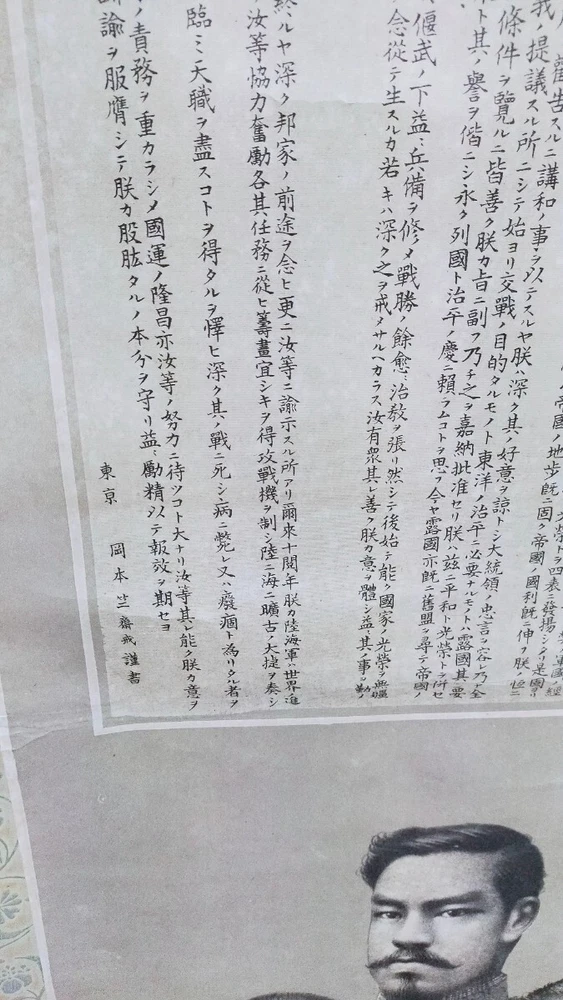 勸告スルニ講和ノ事ヲ以テスルヤ朕ハ深ク其ノ好意ヲ諒トシ大統領ノ忠言ヲ容レ乃チ全
ノ提議スル所ニシテ始ヨリ交戰ノ目的タルモノト東洋ノ治平ニ必要ナルモノトハ露國其ノ要
條件ヲ覽ルニ皆善ク朕カ旨ニ副フ乃チ之ヲ嘉納批准セリ朕ハ茲ニ平和ト光榮トヲ併セ
ト其ノ譽ヲ偕ニシ永ク列國ト治平ノ慶ニ賴ラムコトヲ思フ今ヤ露國亦既ニ舊盟ヲ尋テ帝國ノ
偃武ノ下益々兵備ヲ修メ戰勝ノ餘愈治敎ヲ張リ然シテ後始テ能ク國家ノ光榮ヲ無疆
念從テ生スルカ若キハ深ク之ヲ戒メサルヘカラス汝有衆其レ善ク朕カ意ヲ體シ益其ノ事ヲ勤メ
終ルヤ深ク邦家ノ前途ヲ念ヒ更ニ汝等ニ諭示スル所アリ爾來十閱年朕カ陸海軍ハ世界ノ進
汝等協力奮勵各其任務ニ從ヒ籌畫宜シキヲ得攻戰機ヲ制シ陸ニ海ニ曠古ノ大捷ヲ奏シ
臨ミ天職ヲ盡スコトヲ得タルヲ懌ヒ深ク其ノ戰ニ死シ病ニ斃レ又ハ癈痼ト為リタル者ヲ
ノ責務ヲ重カラシメ國運ノ隆昌亦汝等ノ努力ニ待ツコト大ナリ汝等其レ能ク朕カ意ヲ
諭ヲ服膺シテ朕カ股肱タルノ本分ヲ守リ益々勵精以テ報效ヲ期セヨ
東京 岡本竺齋 謹書